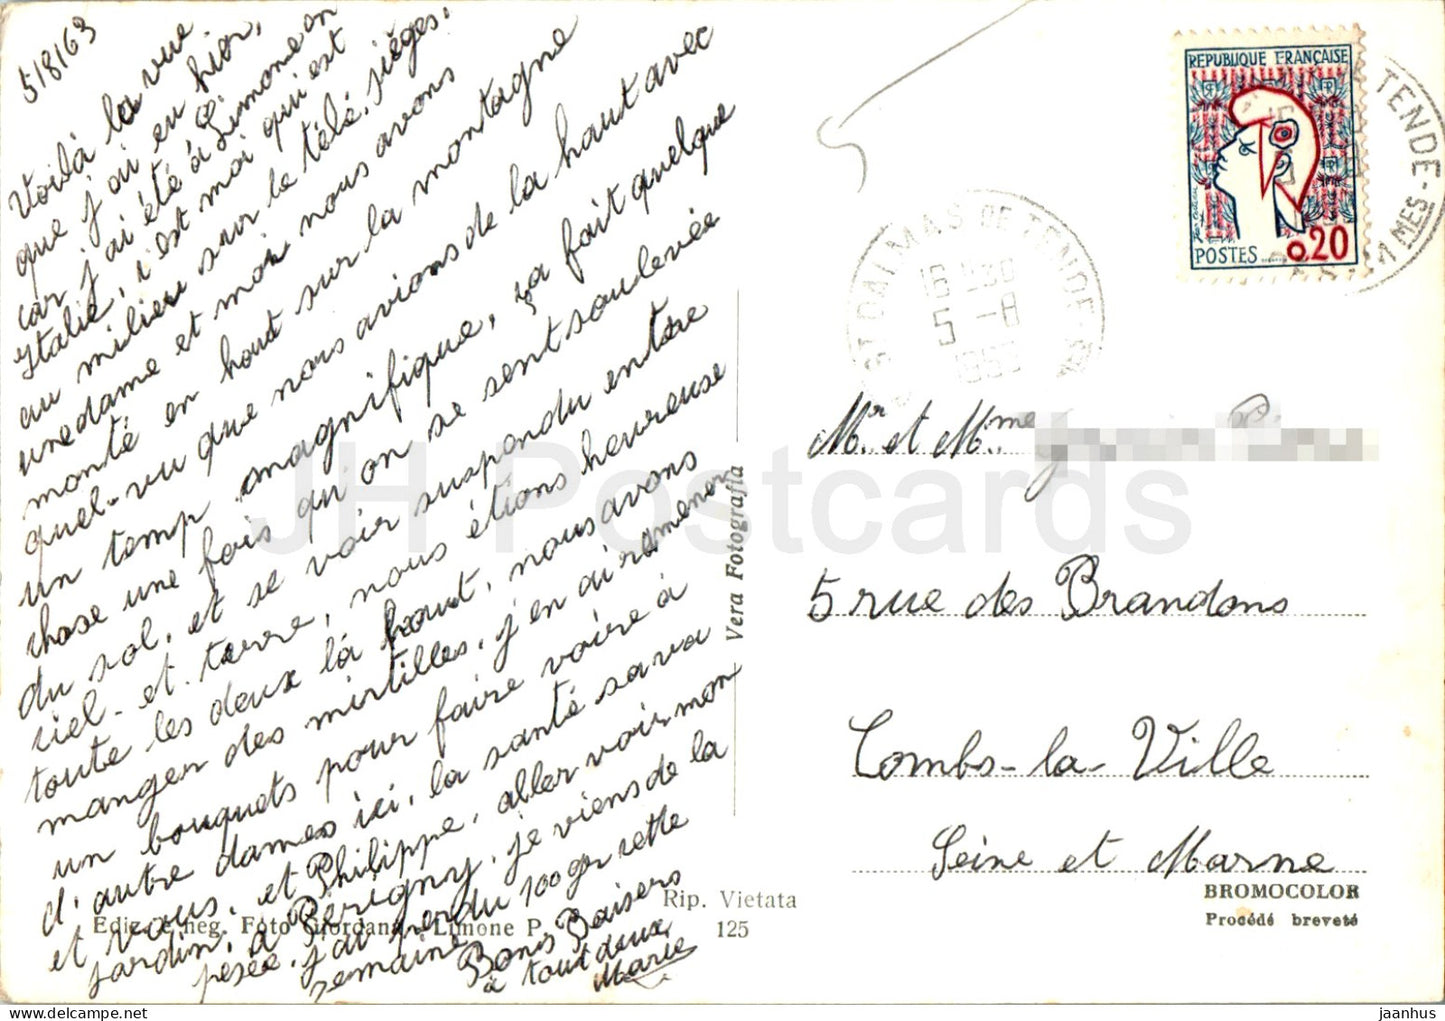 5/8/63
Voilà la vue
que j'ai eu hier,
car j'ai été à Limone en
Italie, c'est moi qui est
au milieu sur le télé. sièges.
une dame et moi nous avons
monté en haut sur la montagne
quel-vu que nous avions de la haut avec
un temp magnifique, ça fait quelque
chose une fois qu'on se sent soulevée
du sol, et se voir suspendu entre
ciel-et-terre, nous étions heureuse
toute les deux là haut, nous avons
manger des mirtilles, j'en ai ramener
un bouquets pour faire voire à
d'autre dames ici, la santé sa va
et vous, et Philippe, aller voir mon
jardin, à Périgny, je viens de la
pesée, j'ai perdu 100 gr cette
semaine
Bons Baisers
à tout deux
Marie
Ediz. e neg. Foto Giordana - Limone P.
Rip. Vietata
125
Vera Fotografia
REPUBLIQUE FRANÇAISE
POSTES
0,20
TENDE
ST DALMAS DE TENDE
16 H30
5 -8
1963
Mr et Mme
5 rue des Brandons
Combs-la-Ville
Seine et Marne
BROMOCOLOR
Procédé breveté
JH Postcards
jaanhus